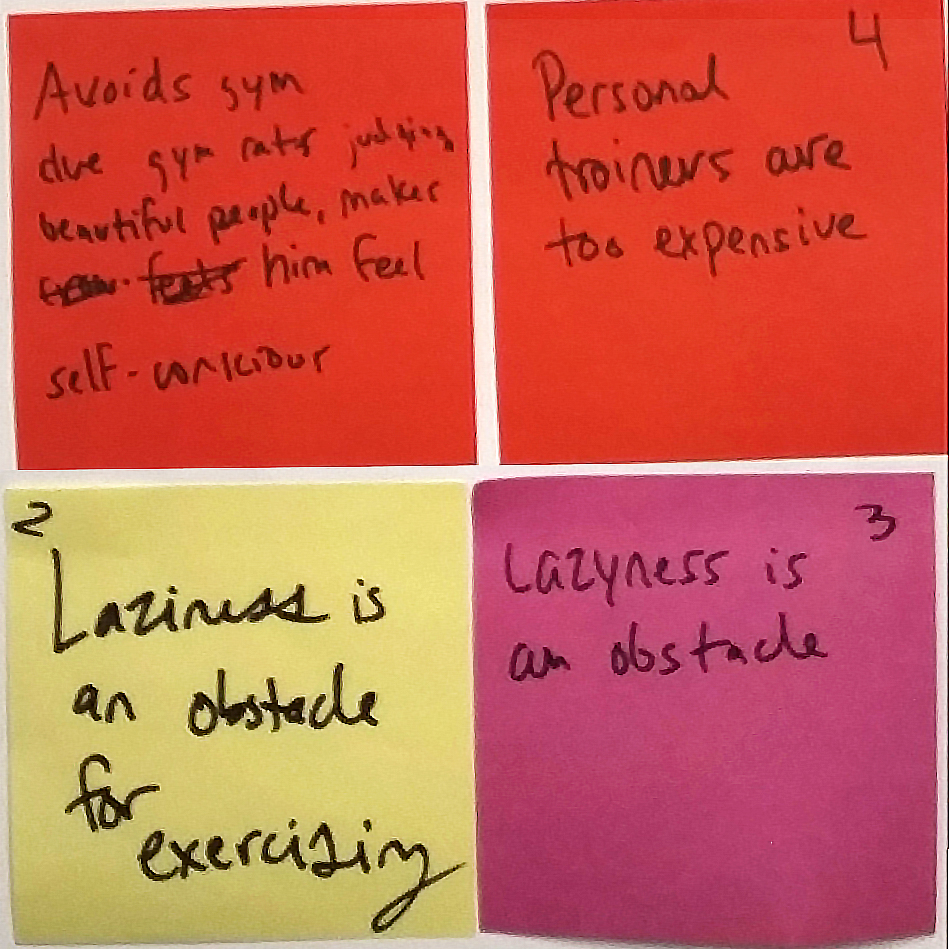 Avoids gym
due gym rats judging,
beautiful people, makes
him feel
self-conscious
4
Personal
trainers are
too expensive
2
Laziness is
an obstacle
for
exercizing
3
Lazyness is
an obstacle